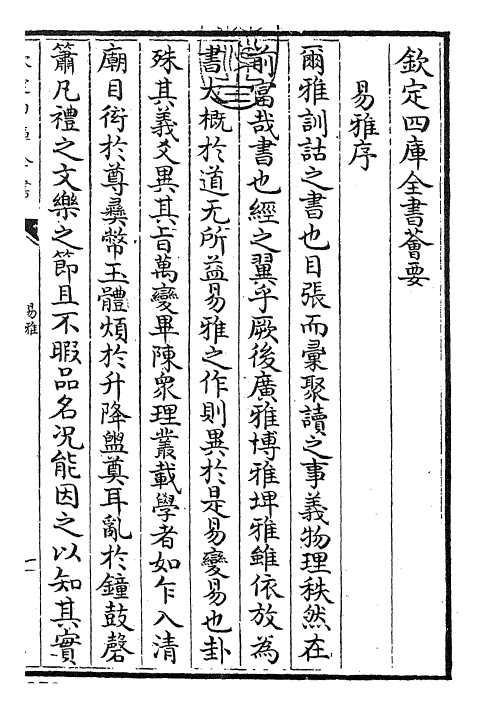 欽定四庫全書薈要
易雅序
爾雅訓詁之書也目張而彙聚讀之事義物理秩然在
前富哉書也經之翼乎厥後廣雅博雅埤雅雖依放為
書大概於道无所益易雅之作則異於是易變易也卦
殊其義爻異其旨萬變畢陳衆理叢載學者如乍入清
廟目衒於尊彝幣玉體煩於升降盥奠耳亂於鐘鼓磬
簫凡禮之文樂之節且不暇品名况能因之以知其實
易雅
一